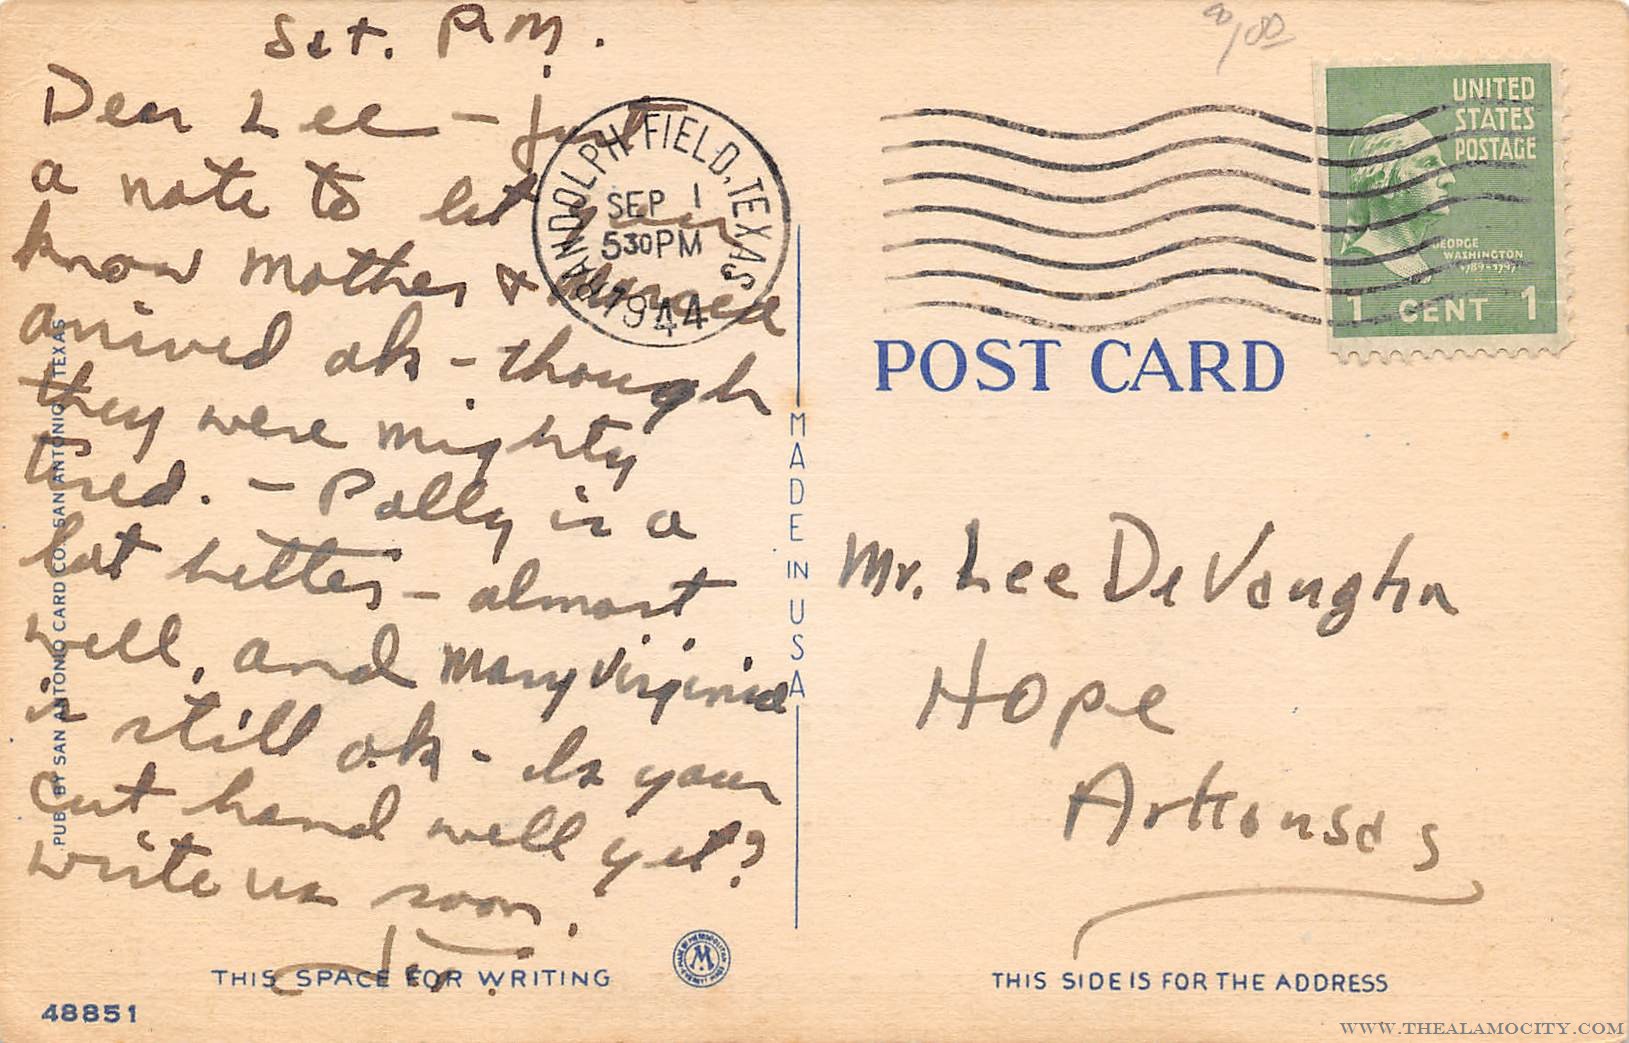 Sat. P.M.
Dear Lee - just
a note to let you
know mother &
arrived ok - though
they were mighty
tired. - Polly is a
lot better - almost
well, and Mary Virginia
is still ok - Is your
cut hand well yet?
write us soon.
THIS SPACE FOR WRITING
48851
PUB. BY SAN ANTONIO CARD CO. SAN ANTONIO, TEXAS
RANDOLPH FIELD, TEXAS
SEP 1
530PM
1944
MADE IN USA
M
UNITED
STATES
POSTAGE
GEORGE
WASHINGTON
1789-1797
1 CENT 1
POST CARD
Mr. Lee DeVaughn
Hope
Arkansas
THIS SIDE IS FOR THE ADDRESS
WWW.THEALAMOCITY.COM